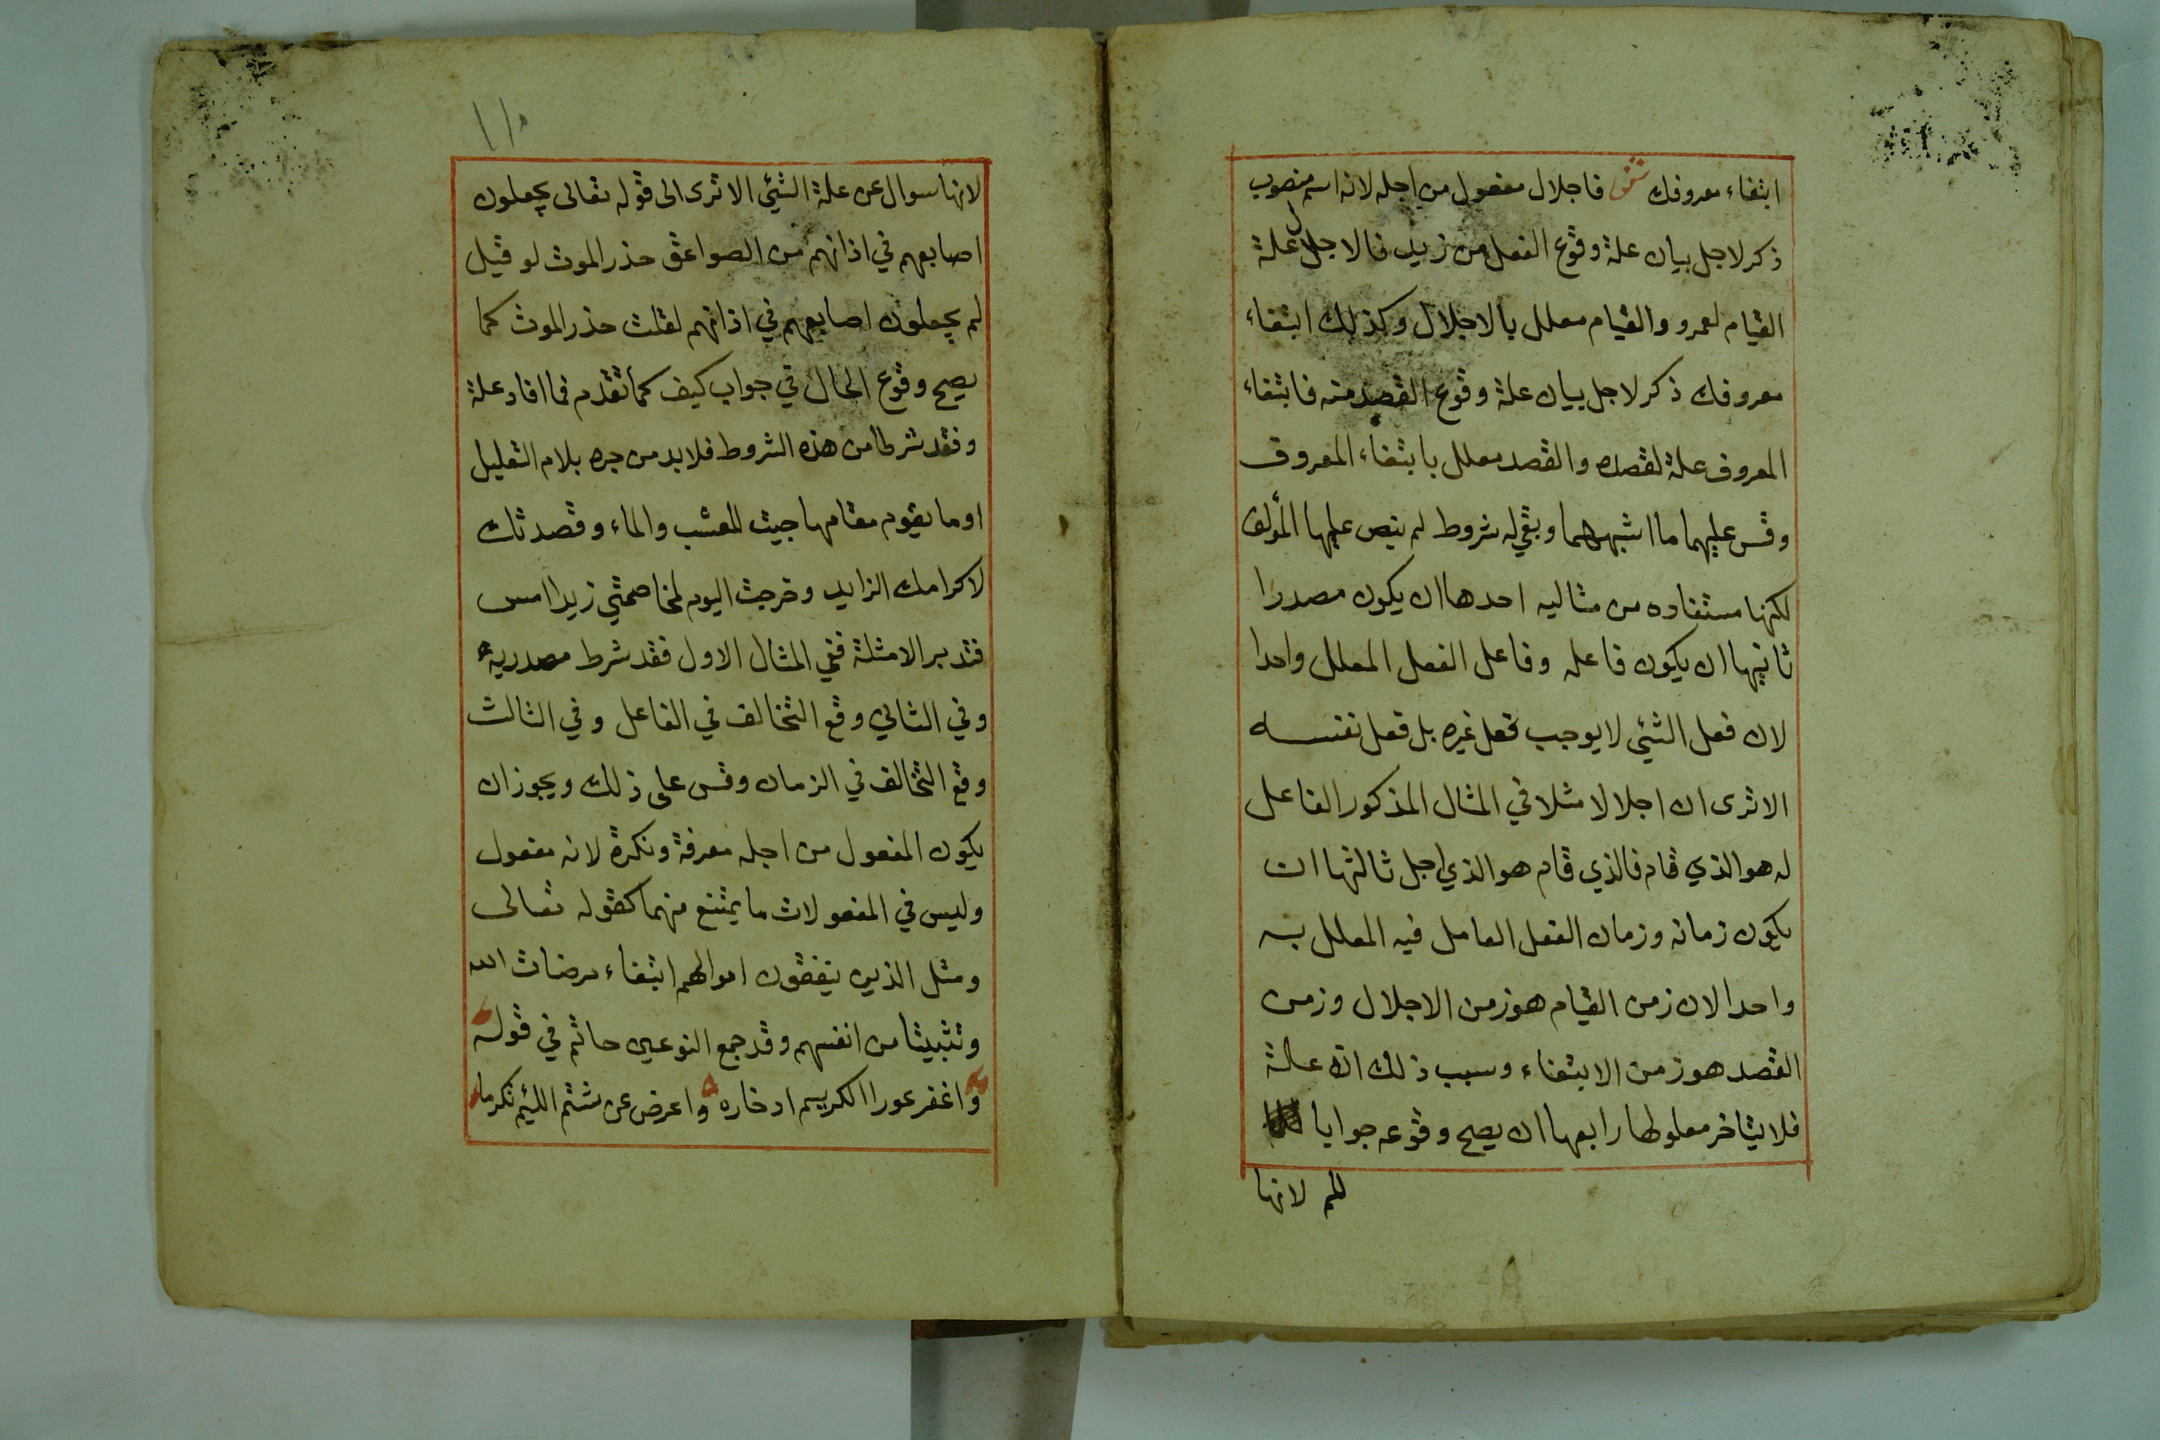 ابتغاء معروفك ش فاجلال مفعول من اجله لانه اسم منصوب
ذكر لاجل بيان علة وقوع الفعل من زيد فالاجلال علة
القيام لعمرو والقيام معلل بالاجلال وكذلك ابتغاء
معروفك ذكر لاجل بيان علة وقوع القصد منه فابتغاء
المعروف علة لقصده والقصد معلل بابتغاء المعروف
وقس عليهما ما اشبههما وبقي له شروط لم ينص عليها المؤلف
لكنها مستفاده من مثاليه احدها ان يكون مصدرا
ثانيها ان يكون فاعله وفاعل الفعل المعلل واحدا
لان فعل الشئي لا يوجب فعل غيره بل فعل نفسه
الا ترى ان اجلالا مثلا في المثال المذكور الفاعل
له هو الذي قام فالذي قام هو الذي اجل ثالثها ان
يكون زمانه وزمان الفعل العامل فيه المعلل به
واحدا لان زمن القيام هو زمن الاجلال وزمن
القصد هو زمن الابتغاء وسبب ذلك انه علة
فلا يتاخر معلولها رابعها ان يصح وقوعه جوابا
للم لانها
١١٠
لانها سوال عن علة الشئي الا ترى الى قوله تعالى يجعلون
اصابعهم في اذانهم من الصواعق حذر الموت لو قيل
لم يجعلون اصابعهم في اذانهم لقلت حذر الموت كما
يصح وقوع الحال في جواب كيف كما تقدم فما افاد علة
وفقد شرطا من هذه الشروط فلا بد من جره بلام التعليل
او ما يقوم مقامها جيت للعشب والماء وقصدتك
لاكرامك الزايد وخرجت اليوم لمخاصمتي زيدا امس
فتدبر الامثلة ففي المثال الاول فقد شرط مصدرية
وفي الثاني وقع التخالف في الفاعل وفي الثالث
وقع التخالف في الزمان وقس على ذلك ويجوز ان
يكون المفعول من اجله معرفة ونكرة لانه مفعول
وليس في المفعولات ما يمتنع منهما كقوله تعالى
ومثل الذين ينفقون اموالهم ابتغاء مرضات الله
وتثبيتا من انفسهم وقد جمع النوعين حاتم في قوله
واغفر عورا الكريم ادخاره واعرض عن شتم اللئيم تكرما